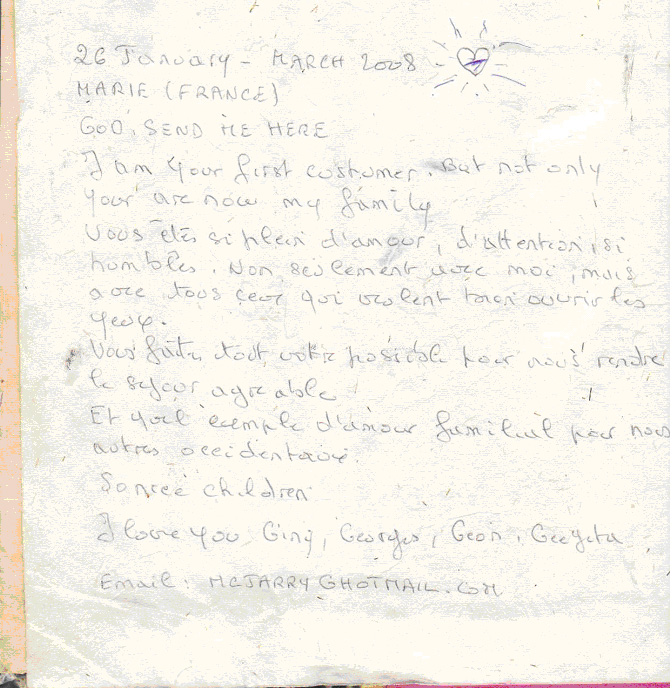 26 January - MARCH 2008
MARIE (FRANCE)
GOD SEND ME HERE
I am your first costumer. But not only
your are now my family
Vous êtes si plein d'amour, d'attention, si
humbles. Non seulement avec moi, mais
avec tous ceux qui veulent bien ouvrir les
yeux.
Vous faites tout votre possible pour nous rendre
le séjour agreable
Et quel exemple d'amour familial pour nous
autres occidentaux.
children
I love you Georges, Geon, Geegeta
Email: MCJARRY@HOTMAIL.COM